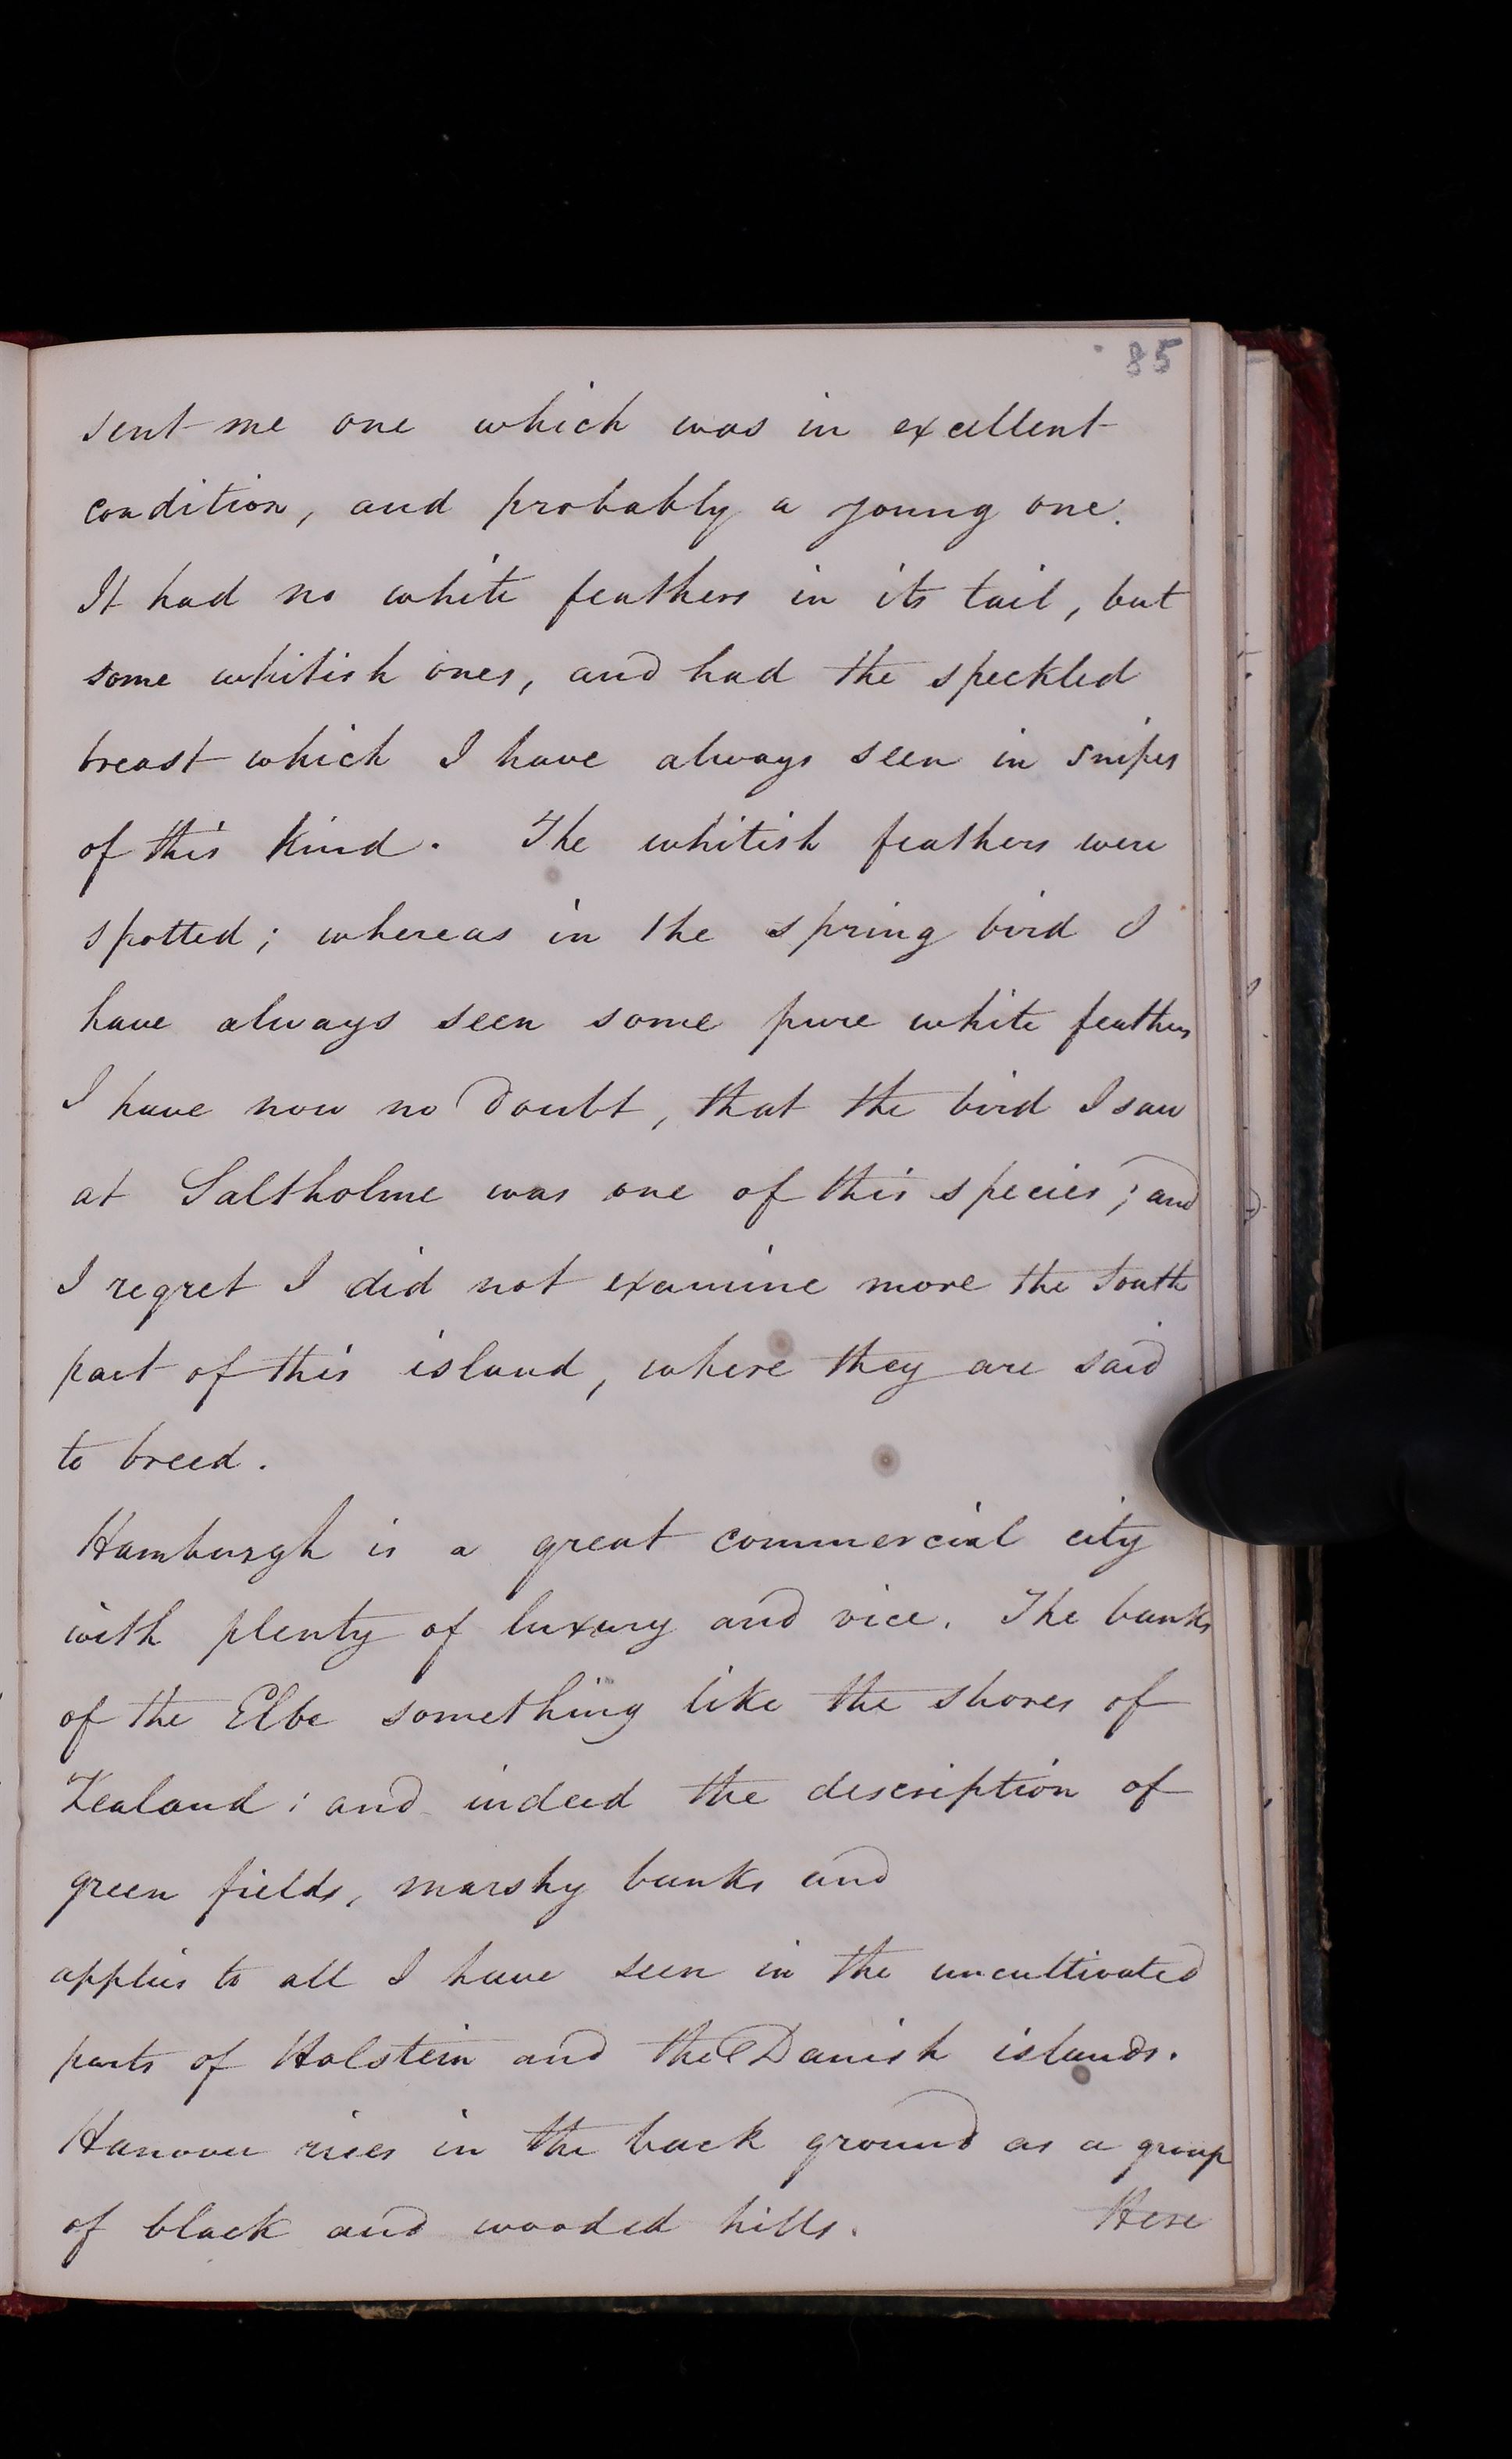 85
sent me one which was in excellent
condition, and probably a young one.
It had no white feathers in its tail, but
some whitish ones, and had the speckled
breast which I have always seen in snipes
of this kind. The whitish feathers were
spotted; whereas in the spring bird I
have always seen some pure white feathers
I have now no doubt, that the bird I saw
at Saltholme was one of this species; and
I regret I did not examine more the South
part of this island, where they are said
to breed.
Hamburgh is a great commercial city
with plenty of luxury and vice. The banks
of the Elbe something like the shores of
Zealand: and indeed the description of
green fields, marshy banks and
applies to all I have seen in the uncultivated
parts of Holstein and the Danish islands.
Hanover rises in the back ground as a group
of black and wooded hills. Here